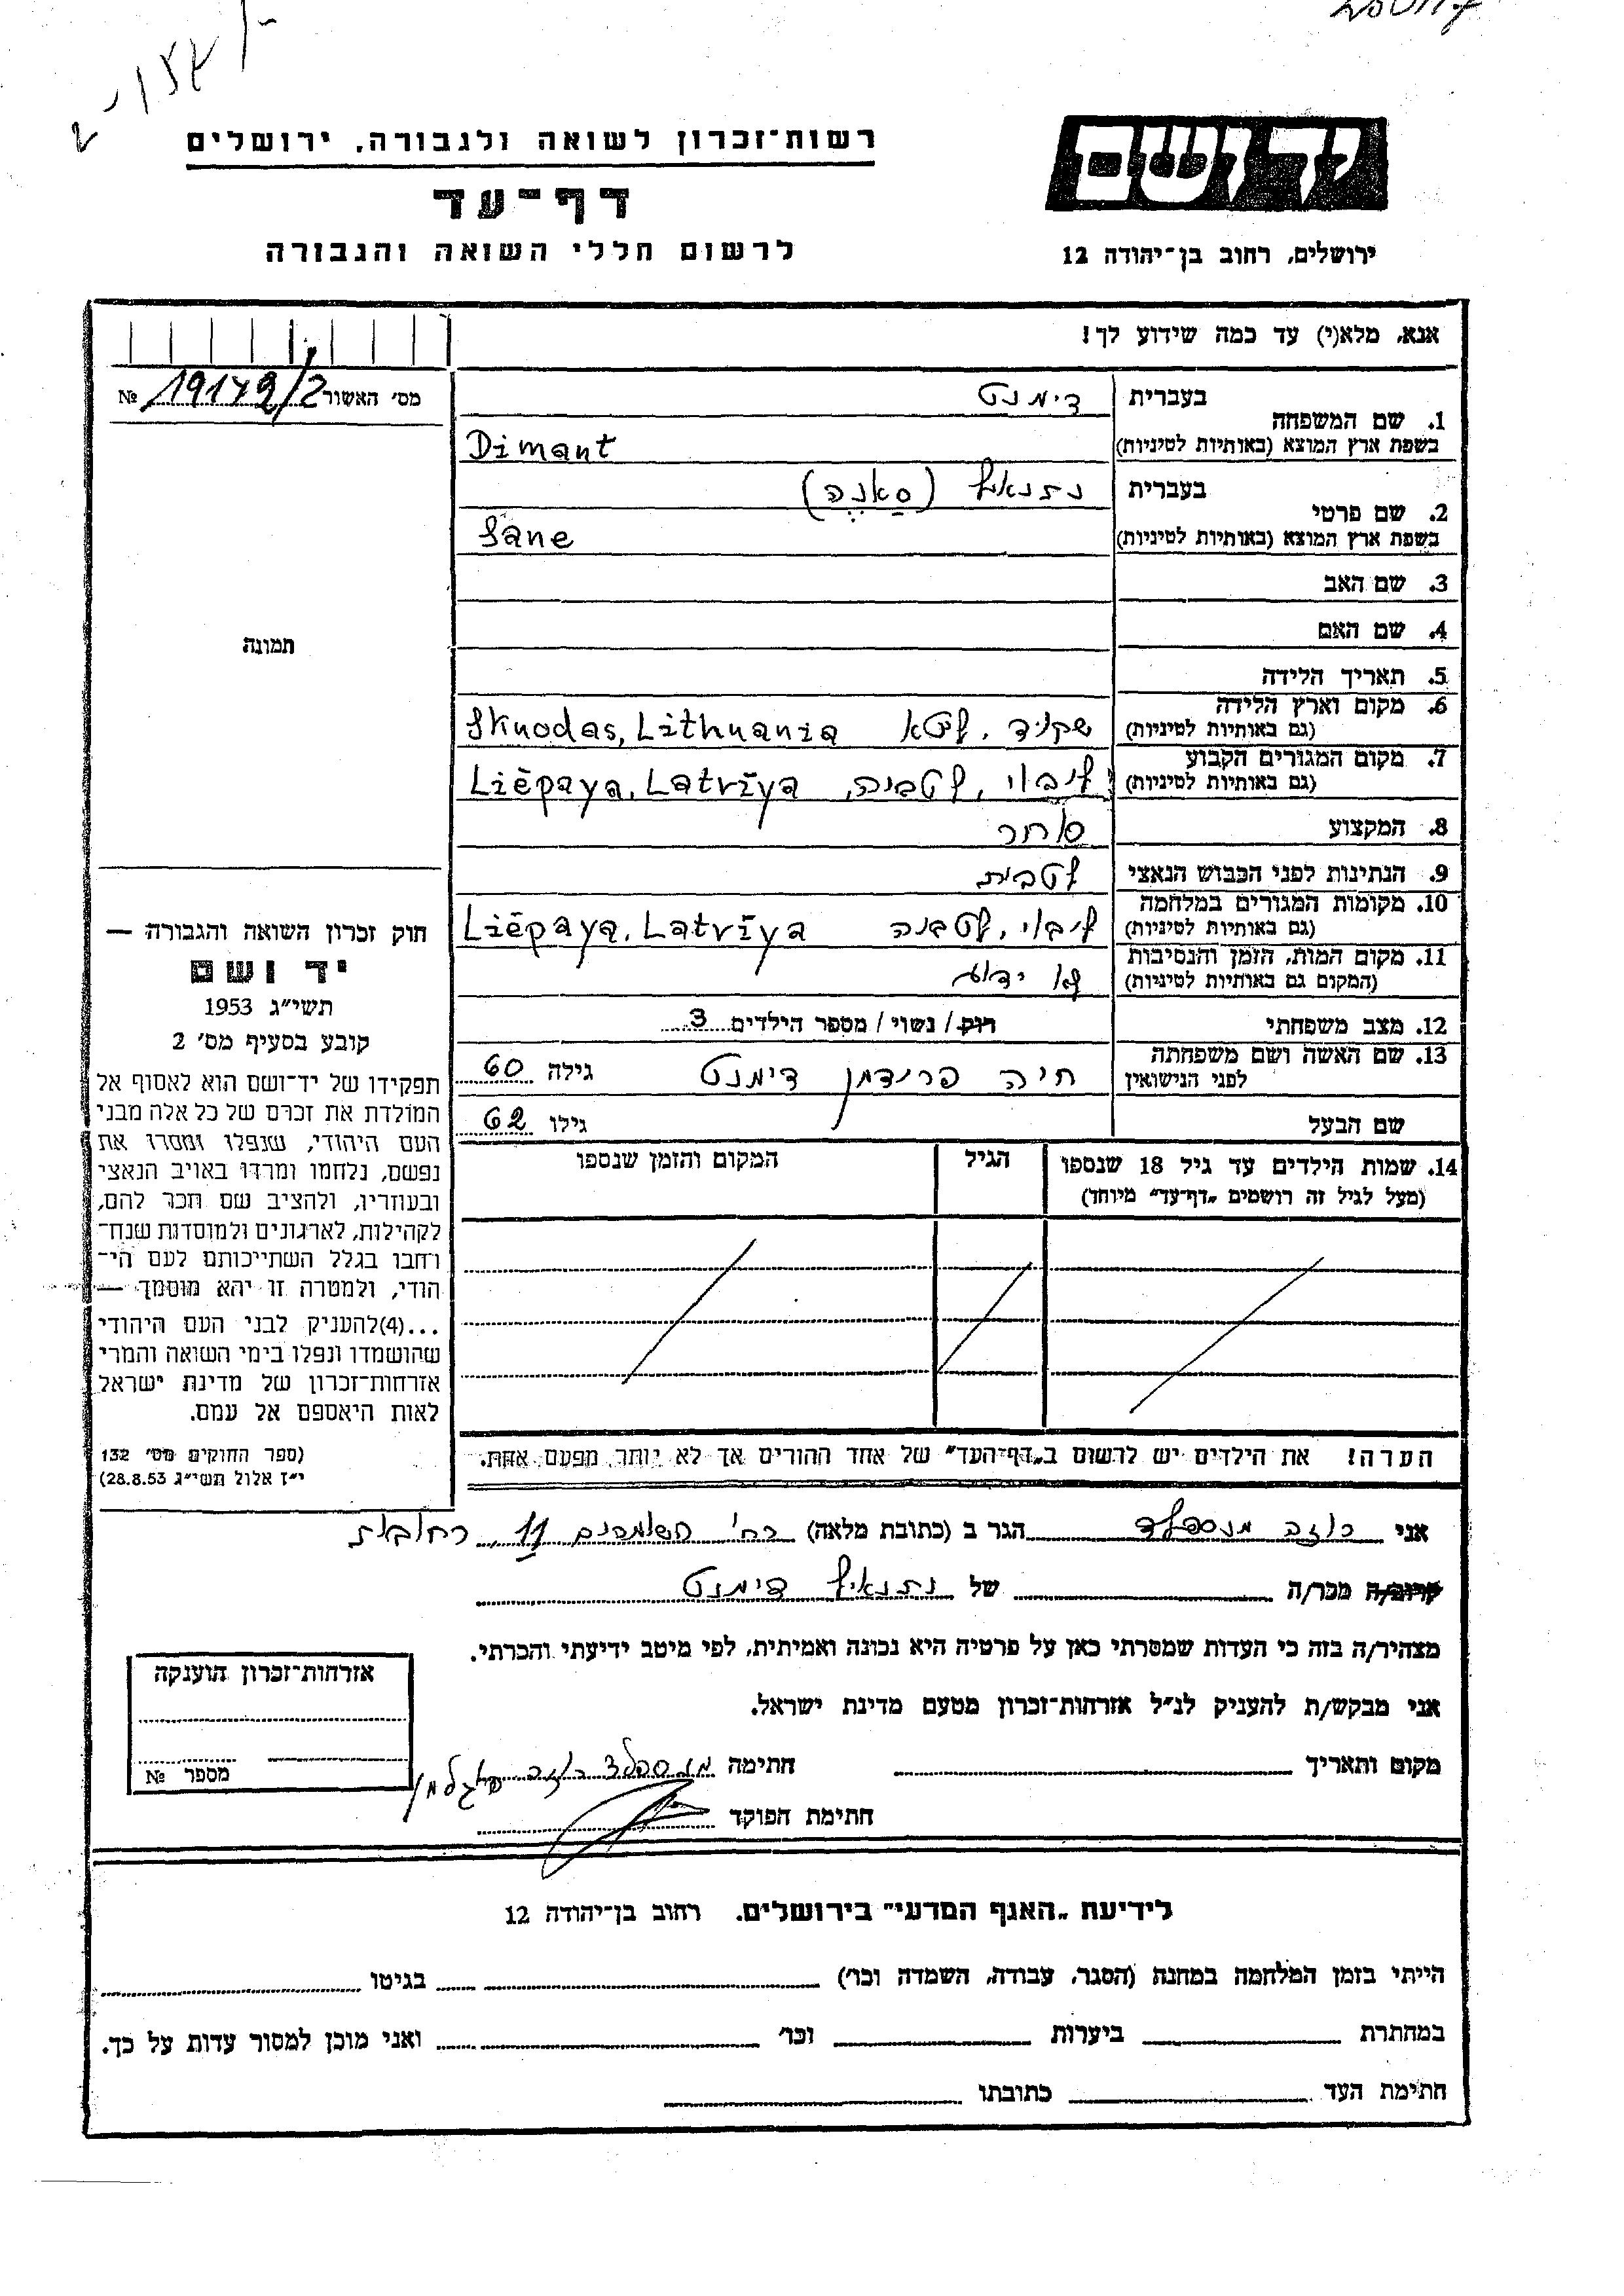 יד ושם
ירושלים, רחוב בן־יהודה 12
רשות־זכרון לשואה ולגבורה, ירושלים
דף־עד
לרשום חללי השואה והגבורה
אנא, מלא(י) עד כמה שידוע לך!
מס' האשור 19179/2 №
1. שם המשפחה בעברית דימנט
בשפת ארץ המוצא (באותיות לטיניות) Dimant
2. שם פרטי בעברית נתנאל (סאנה)
בשפת ארץ המוצא (באותיות לטיניות) Sane
3. שם האב
4. שם האם
5. תאריך הלידה
6. מקום וארץ הלידה
(גם באותיות לטיניות) שקוד, ליטא Skuodas, Lithuania
7. מקום המגורים הקבוע
(גם באותיות לטיניות) ליבוי, לטביה, Liēpaya, Latvīya
8. המקצוע סוחר
9. הנתינות לפני הכבוש הנאצי לטבית
10. מקומות המגורים במלחמה
(גם באותיות לטיניות) ליבוי, לטביה Liēpaya, Latvīya
11. מקום המות, הזמן והנסיבות
(המקום גם באותיות לטיניות) לא ידוע
12. מצב משפחתי רווק / נשוי / מספר הילדים 3
13. שם האשה ושם משפחתה
לפני הנישואין חיה פרידמן דימנט גילה 60
שם הבעל גילו 62
14. שמות הילדים עד גיל 18 שנספו הגיל המקום והזמן שנספו
(מעל לגיל זה רושמים „דף־עד" מיוחד)
תמונה
חוק זכרון השואה והגבורה —
יד ושם
תשי"ג 1953
קובע בסעיף מס' 2
תפקידו של יד־ושם הוא לאסוף אל
המולדת את זכרם של כל אלה מבני
העם היהודי, שנפלו ומסרו את
נפשם, נלחמו ומרדו באויב הנאצי
ובעוזריו, ולהציב שם וזכר להם,
לקהילות, לארגונים ולמוסדות שנח־
רחבו בגלל השתייכותם לעם הי־
הודי, ולמטרה זו יהא מוסמך —
...(4)להעניק לבני העם היהודי
שהושמדו ונפלו בימי השואה והמרי
אזרחות־זכרון של מדינת ישראל
לאות היאספם אל עמם.
(ספר החוקים מס' 132
י"ז אלול תשי"ג 28.8.53)
הערה! את הילדים יש לרשום ב„דף־העד" של אחד ההורים אך לא יותר מפעם אחת.
אני רוזה מנספלד הגר ב (כתובת מלאה) רח' השומרים 11, רחובות
קרוב/ה מכר/ה של נתנאל דימנט
מצהיר/ה בזה כי העדות שמסרתי כאן על פרטיה היא נכונה ואמיתית, לפי מיטב ידיעתי והכרתי.
אני מבקש/ת להעניק לנ"ל אזרחות־זכרון מטעם מדינת ישראל.
מקום ותאריך חתימה מנספלד רוזה
חתימת הפוקד
אזרחות־זכרון הוענקה
מספר №
לידיעת „האגף המדעי" בירושלים. רחוב בן־יהודה 12
הייתי בזמן המלחמה במחנה (הסגר, עבודה, השמדה וכר') בגיטו
במחתרת ביערות וכר' ואני מוכן למסור עדות על כך.
חתימת העד כתובתו